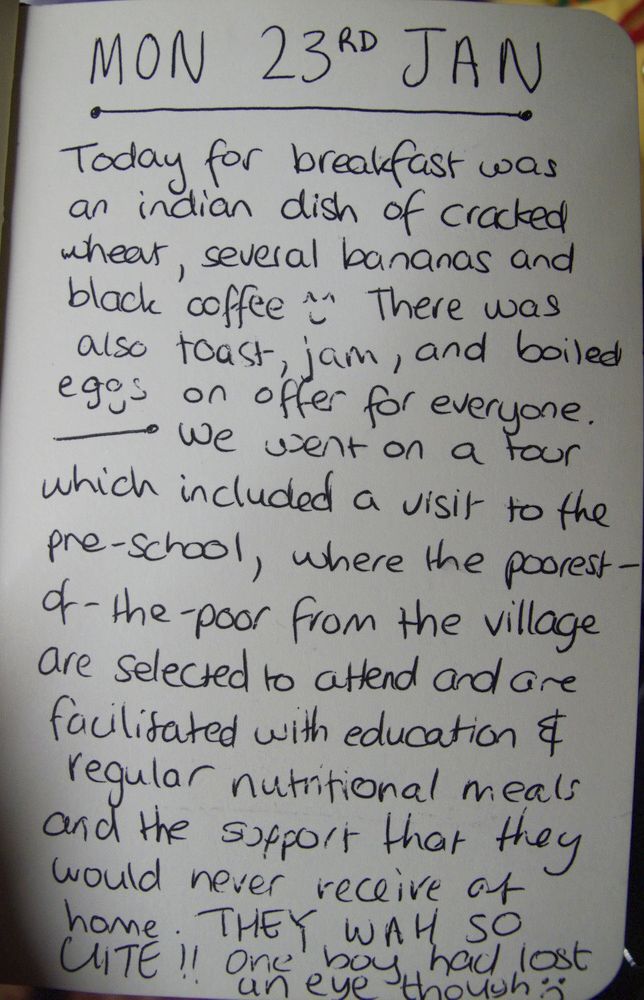 MON 23RD JAN
Today for breakfast was
an indian dish of cracked
wheat, several bananas and
black coffee There was
also toast, jam, and boiled
eggs on offer for everyone.
We went on a tour
which included a visit to the
pre-school, where the poorest-
of-the-poor from the village
are selected to attend and are
facilitated with education &
regular nutritional meals
and the support that they
would never receive at
home. THEY WAH SO
CUTE!! One boy had lost
an eye though :(